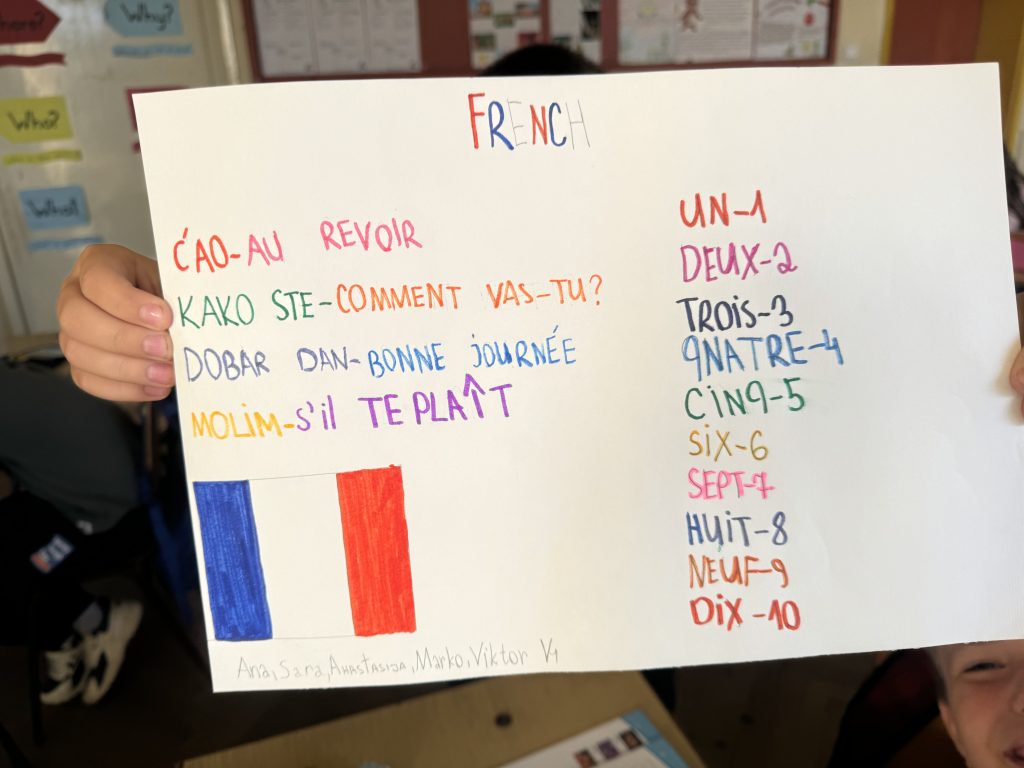 Where?
Why?
Who?
What?
FRENCH
ĆAO-AU REVOIR
KAKO STE-COMMENT VAS-TU?
DOBAR DAN-BONNE JOURNÉE
MOLIM-S'il TE PLAÎT
UN-1
DEUX-2
TROIS-3
QNATRE-4
CINQ-5
SIX-6
SEPT-7
HUIT-8
NEUF-9
DIX-10
Ana, Sara, Anastasija, Marko, Viktor V1